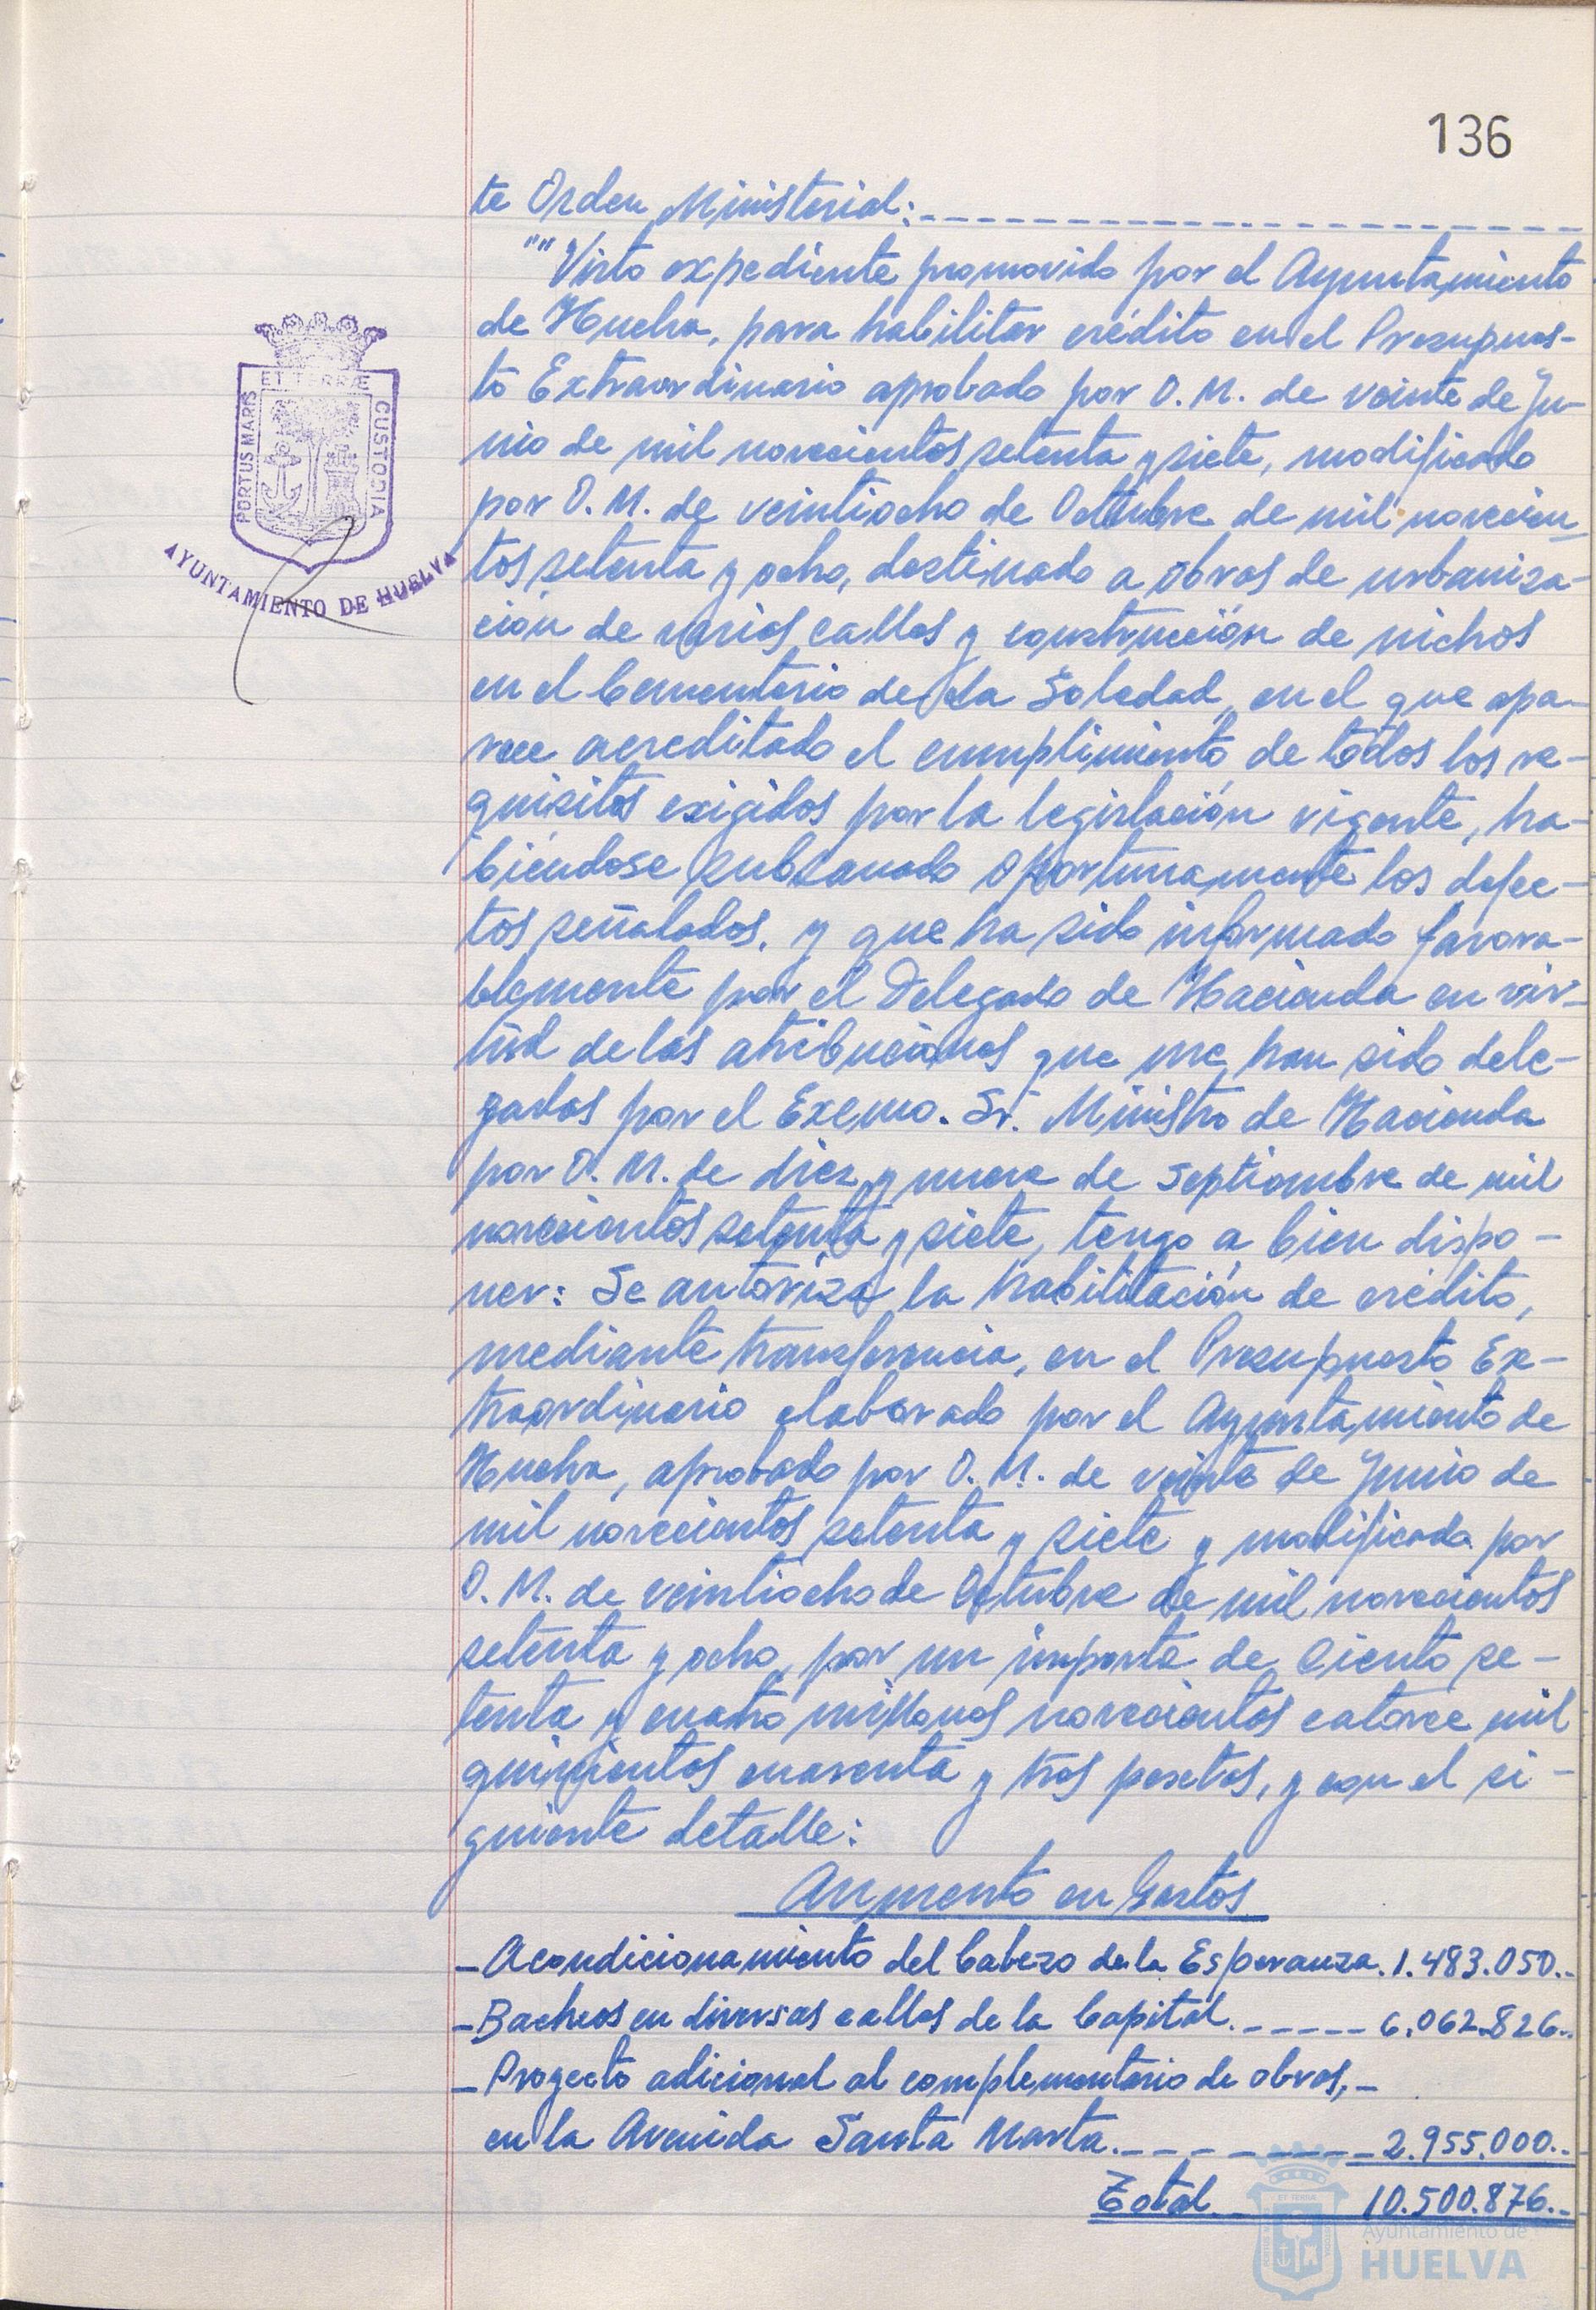 136
te Orden Ministerial:
""Visto expediente promovido por el Ayuntamiento
de Huelva, para habilitar crédito en el Presupues-
to Extraordinario aprobado por O. M. de veinte de Ju-
nio de mil novecientos setenta y siete, modificado
por O. M. de veintiocho de Octubre de mil novecien
tos setenta y ocho, destinado a obras de urbaniza-
ción de varias calles y construcción de nichos
en el Cementerio de la Soledad, en el que apa-
rece acreditado el cumplimiento de todos los re-
quisitos exigidos por la legislación vigente, ha-
biéndose subsanado oportunamente los defec-
tos señalados, y que ha sido informado favora-
blemente por el Delegado de Hacienda en vir-
tud de las atribuciones que me han sido dele-
gadas por el Excmo. Sr. Ministro de Hacienda
por O. M. de diez y nueve de Septiembre de mil
novecientos setenta y siete, tengo a bien dispo-
ner: Se autoriza la habilitación de crédito,
mediante transferencia, en el Presupuesto Ex-
traordinario elaborado por el Ayuntamiento de
Huelva, aprobado por O. M. de veinte de Junio de
mil novecientos setenta y siete y modificado por
O. M. de veintiocho de Octubre de mil novecientos
setenta y ocho, por un importe de ciento se-
tenta y cuatro millones novecientos catorce mil
quinientos cuarenta y tres pesetas, y con el si-
guiente detalle:
Aumento en Gastos
- Acondicionamiento del Cabezo de la Esperanza. 1.483.050.-
- Bacheos en diversas calles de la Capital. ----- 6.062.826.-
- Proyecto adicional al complementario de obras,-
en la Avenida Santa Marta. ------- 2.955.000.-
Total 10.500.876.-
PORTUS MARIS ET TERRÆ CUSTODIA
AYUNTAMIENTO DE HUELVA
Ayuntamiento de
HUELVA